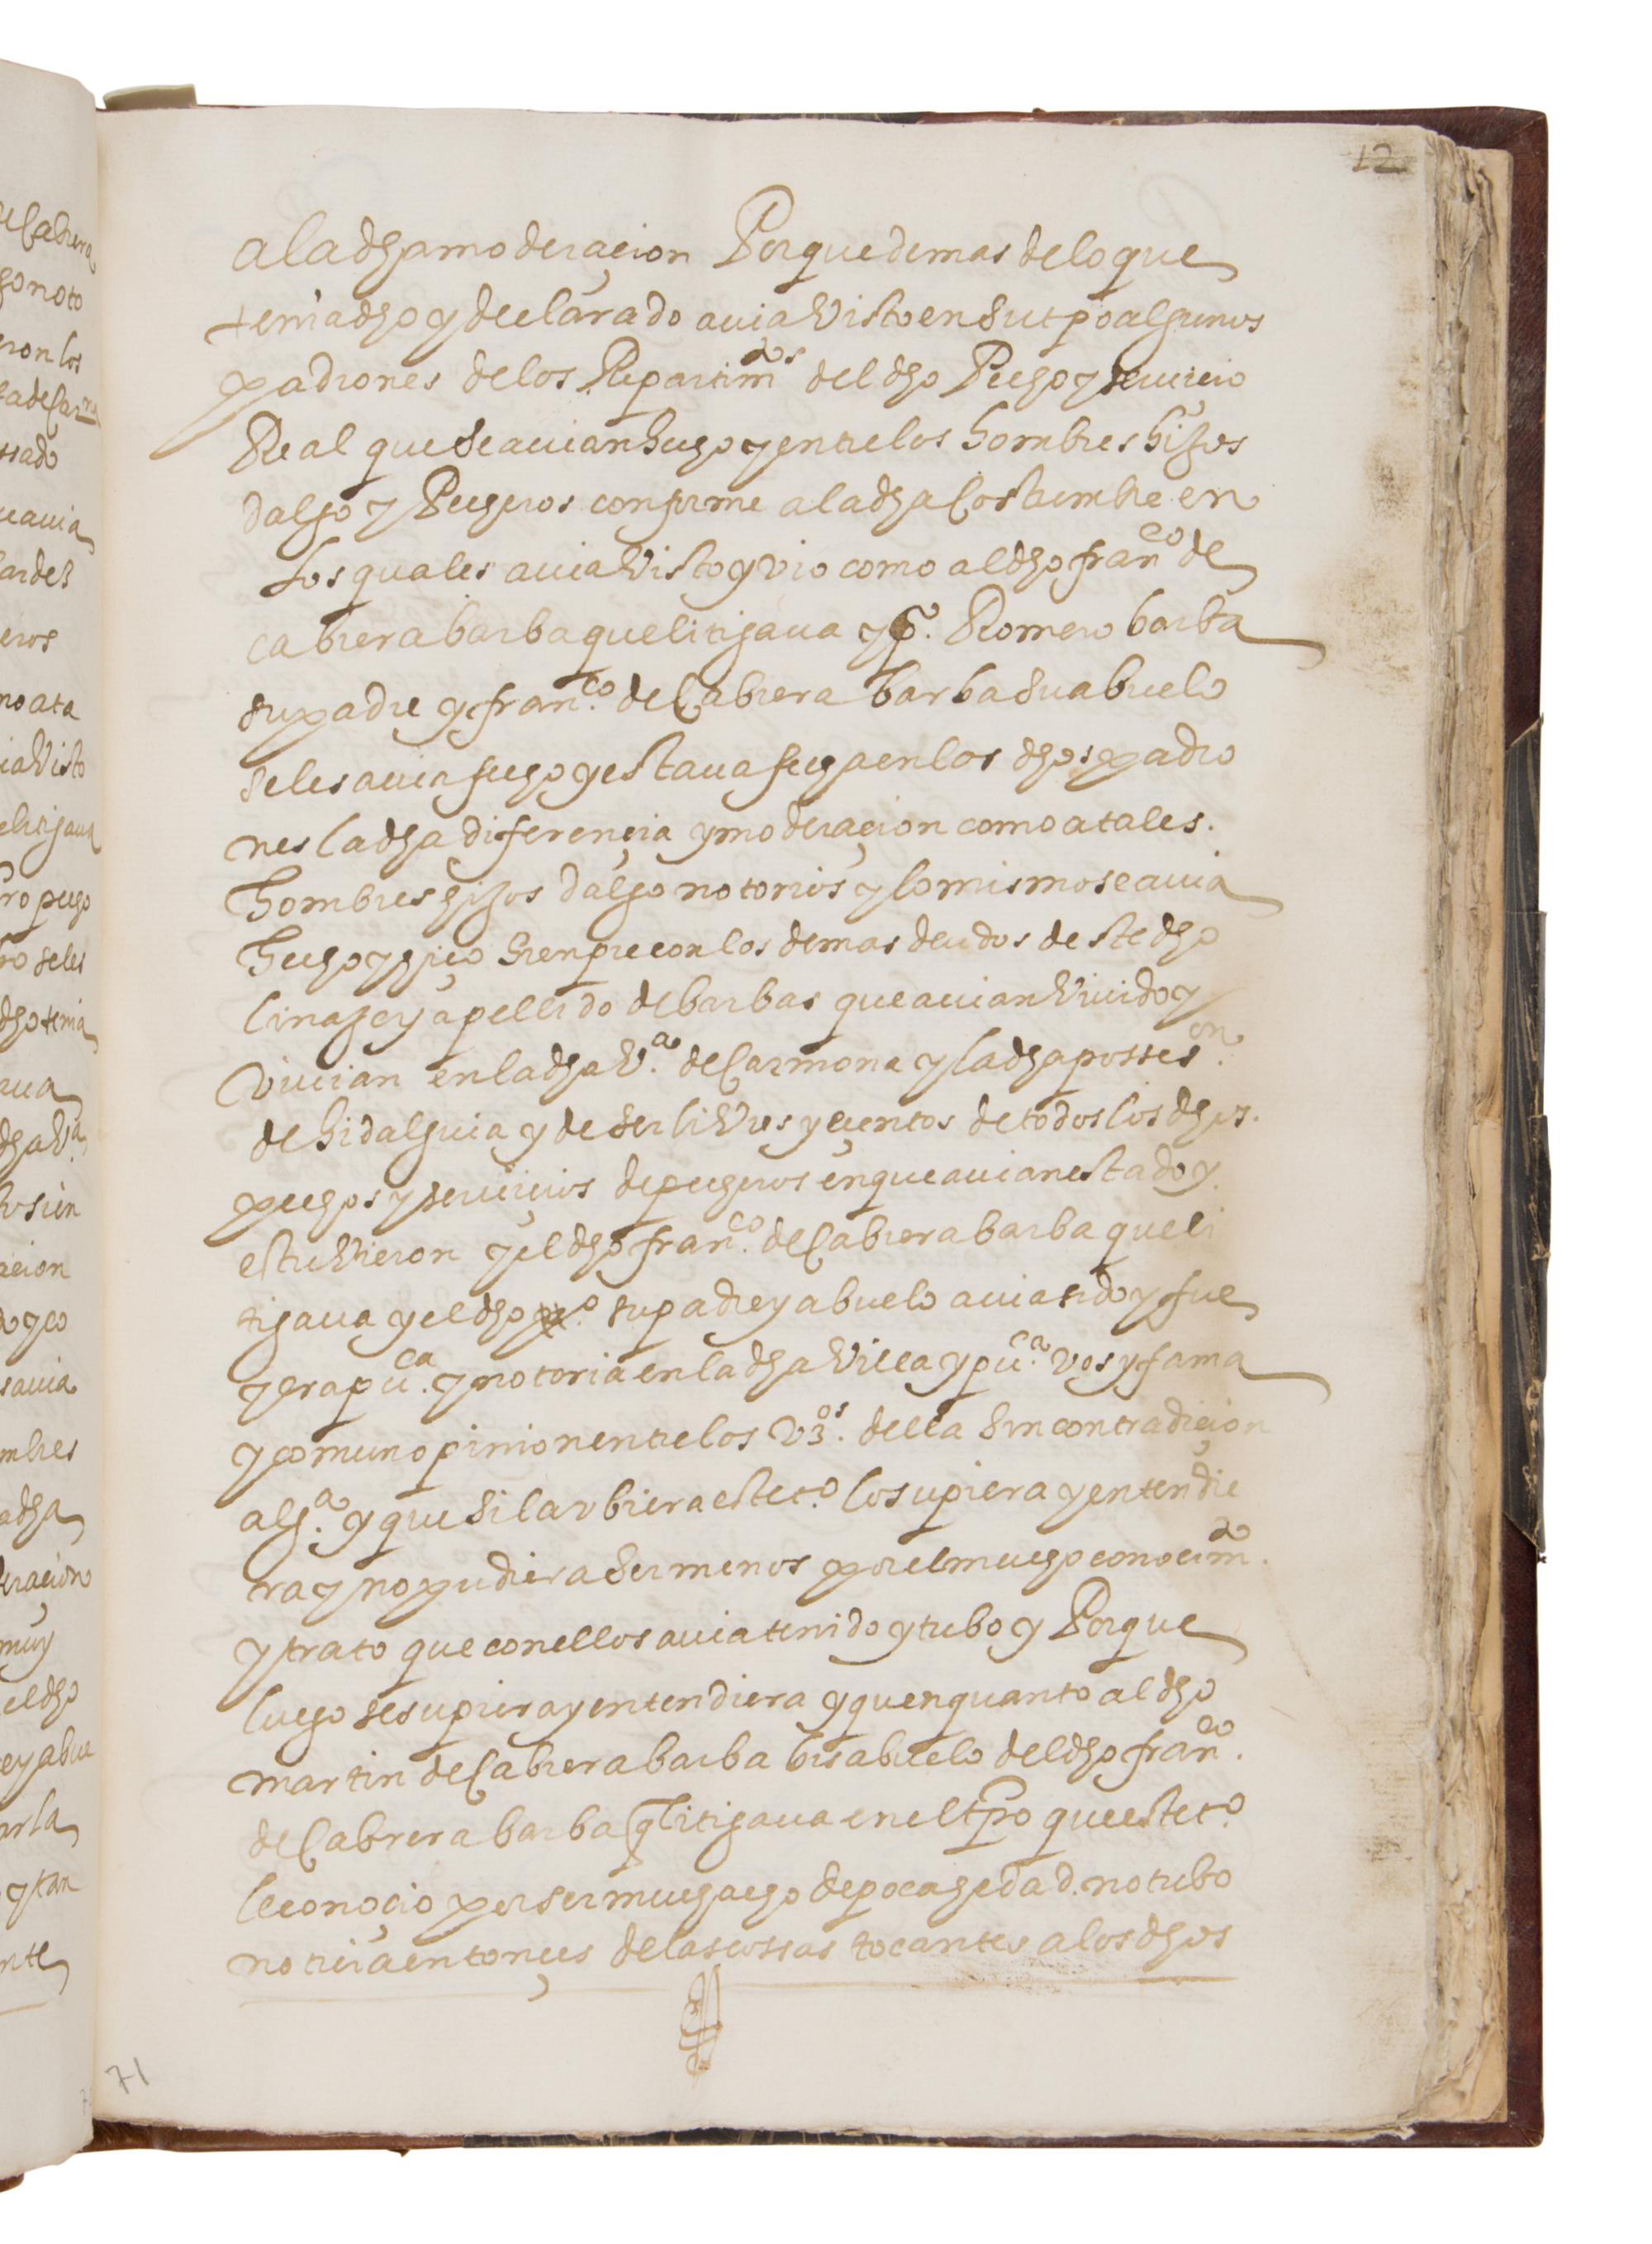 12
a la dha moderaçion Porque demas de lo que
tenia dho y declarado auia Visto en su tpo algunos
padrones de los Repartim.dos del dho Pecho y seruicio
Real que se auian hecho entre los hombres hijos
dalgo y Pecheros conforme a la dha Costumbre en
los quales auia Visto y vio como al dho fran.co de
cabrera barba que litigaua y p.o Romero barba
su padre y fran.co de Cabrera barba su abuelo
se les auia fecho y estaua fecha en los dhos padro
nes la dha diferençia y moderaçion como a tales.
hombres hijos dalgo notorios y lo mismo se auia
hecho y hiço sienpre con los demas deudos deste dho
linaje y apellido de barbas que auian Viuido y
Viuian en la dha V.a de Carmona y la dha posses.on
de hidalguia y de ser liVres y ecentos de todos los dhos.
pechos y seruiçios de pecheros en que auian estado y
estuVieron y el dho fran.co de Cabrera barba que li
tigaua y el dho p.o su padre y abuelo auia sido y fue
y era pu.ca y notoria en la dha Villa y pu.ca Vos y fama
y comun opinion entre los Vz.os della sin contradiçion
alg.a y que si la vbiera este t.o lo supiera y entendie
ra y no pudiera ser menos por el mucho conocim.do
y trato que con ellos auia tenido y tubo y Porque
luego se supiera y entendiera y que en quanto al dho
martin de Cabrera barba bisabuelo del dho fran.co
de Cabrera barba q litigaua en el tpo que este t.o
le conoçio por ser muchacho de poca hedad. no tubo
notiçia entonçes de las cossas tocantes a los dhos
71